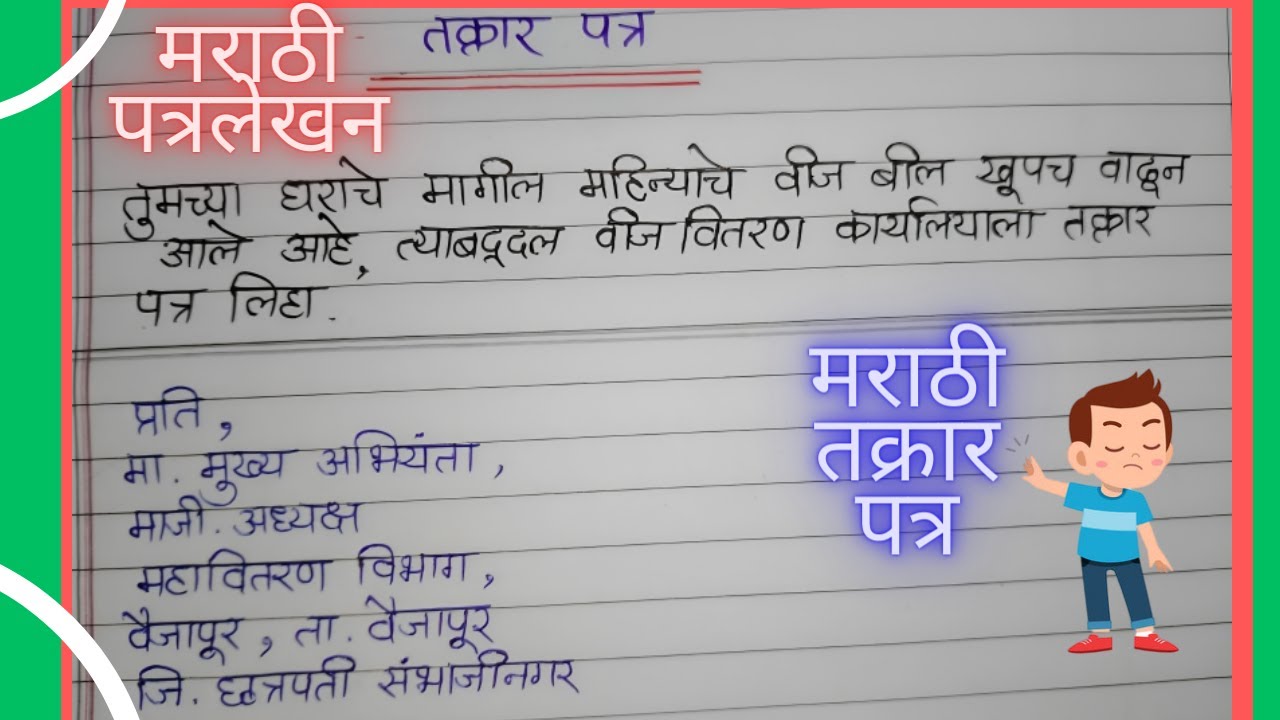 तक्रार पत्र
मराठी
पत्रलेखन
तुमच्या घराचे मागील महिन्याचे वीज बील खूपच वाढून
आले आहे, त्याबद्दल वीज वितरण कार्यालियाला तक्रार
पत्र लिहा.
मराठी
तक्रार
पत्र
प्रति,
मा. मुख्य अभियंता,
माजी. अध्यक्ष
महावितरण विभाग,
वैजापूर, ता. वैजापूर
जि. छत्रपती संभाजीनगर